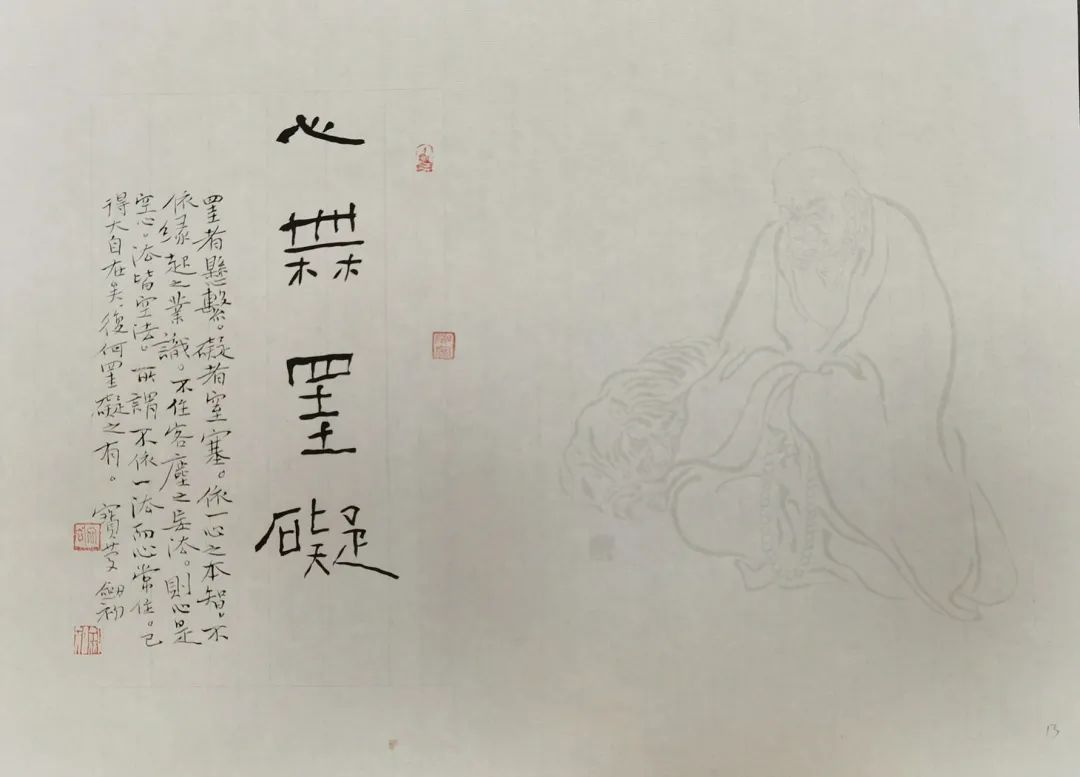 心無罣礙
罣者懸繫。礙者窒塞。依一心之本智。不
依緣起之業識。不住客塵之妄法。則心是
空心。法皆空法。所謂不依一法而心常住。已
得大自在矣。復何罣礙之有。寶
初
13